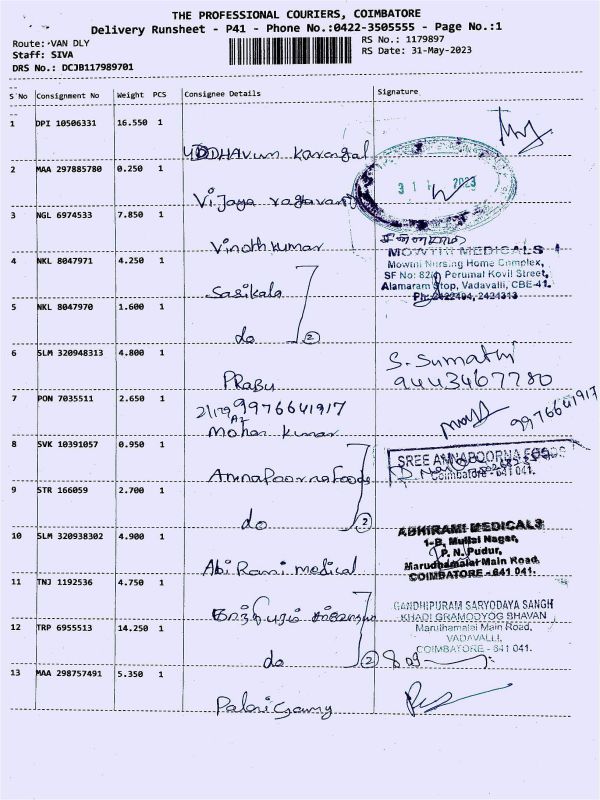 THE PROFESSIONAL COURIERS, COIMBATORE
Delivery Runsheet - P41 - Phone No.:0422-3505555 - Page No.:1
Route: VAN DLY
Staff: SIVA
DRS No.: DCJB117989701
RS No.: 1179897
RS Date: 31-May-2023
S No Consignment No Weight PCS Consignee Details Signature
1 DPI 10506331 16.550 1
2 MAA 297885780 0.250 1 Vijaya
3 NGL 6974533 7.850 1 Vinothkumar
4 NKL 8047971 4.250 1 Sasikala
5 NKL 8047970 1.600 1 do 2
6 SLM 320948313 4.800 1 Prabu
7 PON 7035511 2.650 1 9976641917
Mohan Kumar
8 SVK 10391057 0.950 1 AnnaPoorna Foods
9 STR 166059 2.700 1 do 2
10 SLM 320938302 4.900 1 Abi Rami Medical
11 TNJ 1192536 4.750 1
12 TRP 6955513 14.250 1 do 2
13 MAA 298757491 5.350 1
31 2023
MOWTHI MEDICALS
Mowthi Nursing Home Complex,
Perumal Kovil Street,
Alamaram Stop, Vadavalli, CBE-41.
Ph: 2422494, 2424313
S. Sumathi
9443467780
9976641917
SREE ANNAPOORNA FOODS
Coimbatore - 641 041.
ABHIRAMI MEDICALS
1-B, Mullai Nagar,
P. N. Pudur,
Marudhamalai Main Road,
COIMBATORE - 641 041.
GANDHIPURAM SARVODAYA SANGH
KHADI GRAMODYOG BHAVAN
Maruthamalai Main Road,
VADAVALLI,
COIMBATORE - 641 041.